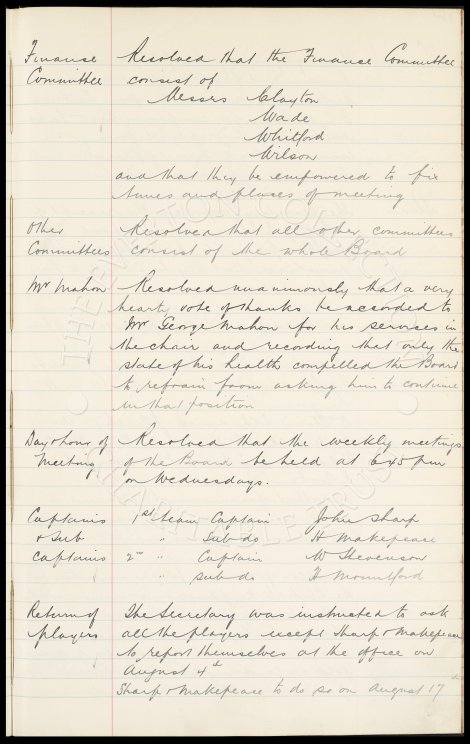 Finance Resolved that the Finance Committee
Committee consist of
Messrs Clayton
Wade
Whitford
Wilson
and that they be empowered to fix
times and places of meeting
Other Resolved that all other committees
Committees consist of the whole Board
Mr Mahon Resolved unanimously that a very
hearty vote of thanks be accorded to
Mr George Mahon for his services in
the chair and recording that only the
state of his health compelled the Board
to refrain from asking him to continue
in that position
Day & hour of Resolved that the weekly meetings
Meeting of the Board be held at 6.45 pm
on Wednesdays.
Captains 1st team Captain John Sharp
& Sub " Sub do H Makepeace
Captains 2nd " Captain W Stevenson
" sub do H Mountford
Return of The Secretary was instructed to ask
players all the players except Sharp & Makepeace
to report themselves at the office on
August 4th
Sharp & Makepeace to do so on August 17th
THE EVERTON COLLECTION
CHARITABLE TRUST